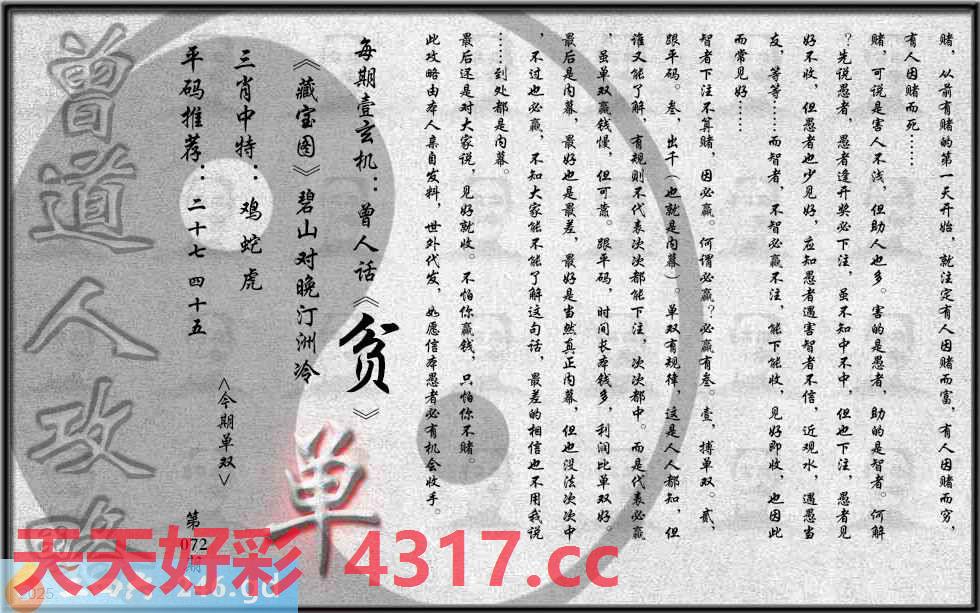 赌，从前有赌的第一天开始，就注定有人因赌而富，有人因赌而穷，
有人因赌而死……
赌，可说是害人不浅，但助人也多。害的是愚者，助的是智者。何解
？先说愚者，愚者逢开奖必下注，虽不知中不中，但也下注，愚者见
好不收，但愚者也少见好，应知愚者遇害智者不信，近观水，遇愚当
友，等等……而智者，不智必赢不注，能下能收，见好即收，也因此
而常见好……
智者下注不算赌，因必赢。何谓必赢？必赢有叁。壹，搏单双。贰，
跟平码。叁，出千（也就是内幕）。单双有规律，这是人人都知，但
谁又能了解，有规则不代表次次都能下注，次次都中。而是代表必赢
，虽单双赢钱慢，但可靠。跟平码，时间长本钱多，利润比单双好。
最后是内幕，最好也是最差，最好是当然真正内幕，但也没法次次中
，不过也必赢，不知大家能不能了解这句话，最差的相信也不用我说
……到处都是内幕。
最后还是对大家说，见好就收。不怕你赢钱，只怕你不赌。
此攻略由本人亲自发料，世外代发，如愿信本愚者必有机会收手。
每期壹玄机：曾人话《贫》
《藏宝图》碧山对晚汀洲冷
三肖中特：鸡蛇虎
平码推荐：二十七 四十五
<今期单双>
单
第
072
期
曾道人攻略
天天好彩 4317.cc
2025
246.gd